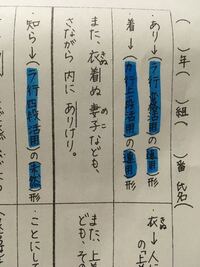 ( )年( )組( )番 氏名
・あり→ラ行変格活用の連用形
・着→カ行上一段活用の連用形
衣→人に
きぬ
また、衣着ぬ妻子なども、
きぬ
めこ
さながら内にありけり。
・知ら→ラ行四段活用の未然形
・ことにして